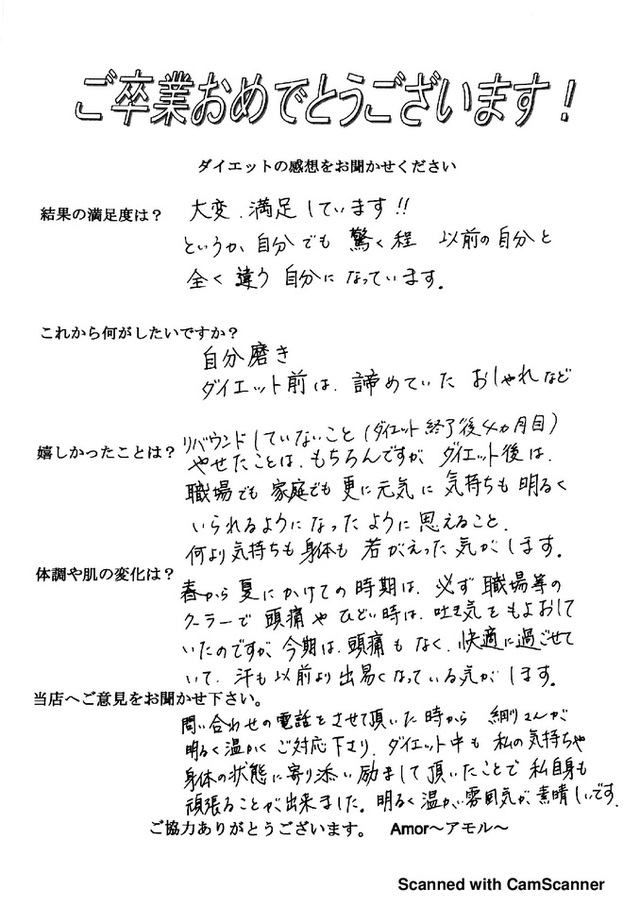 ご卒業おめでとうございます!
ダイエットの感想をお聞かせください
結果の満足度は? 大変、満足しています!!
というか、自分でも 驚く程 以前の自分と
全く違う自分になっています。
これから何がしたいですか?
自分磨き
ダイエット前は、諦めていた おしゃれなど
嬉しかったことは? リバウンドしていないこと(ダイエット終了後4ヵ月目)
やせたことは、もちろんですが、ダイエット後は、
職場でも 家庭でも 更に元気に 気持ちも 明るく
いられるようになったように思えること、
何より気持ちも身体も 若がえった気がします。
体調や肌の変化は? 春から夏にかけての時期は、必ず職場等の
クーラーで 頭痛や ひどい時は、吐き気をもよおして
いたのですが、今期は、頭痛もなく、快適に過ごせて
いて、汗も以前より出易くなっている気がします。
当店へご意見をお聞かせ下さい。
問い合わせの電話をさせて頂いた時から 細川さんが
明るく温かく ご対応下さり、ダイエット中も 私の気持ちや
身体の状態に寄り添い励まして頂いたことで 私自身も
頑張ることが出来ました。明るく温かい雰囲気が素晴しいです。
ご協力ありがとうございます。 Amor~アモル~
Scanned with CamScanner